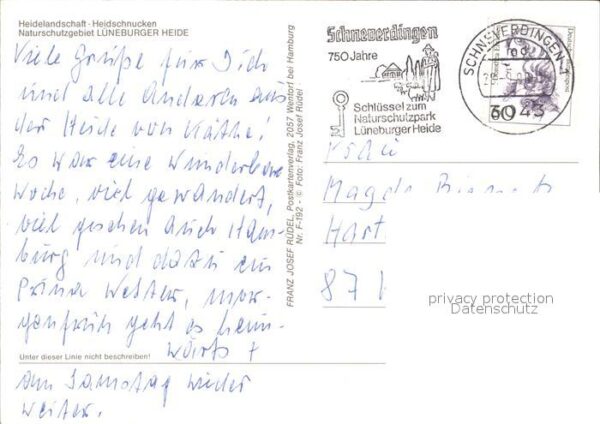 Heidelandschaft - Heidschnucken
Naturschutzgebiet LÜNEBURGER HEIDE
Viele Grüße für Dich
und alle Anderen aus
der Heide von Käthe!
Es war eine wunderbare
Woche, viel gewandert,
viel gesehen auch Ham-
burg und dazu ein
prima Wetter, mor-
genfrüh geht es heim-
Unter dieser Linie nicht beschreiben!
wärts +
am Samstag wieder
weiter.
FRANZ JOSEF RÜDEL, Postkartenverlag, 2057 Wentorf bei Hamburg
Nr. F-192 - © Foto: Franz Josef Rüdel
Schneverdingen
750 Jahre
Schlüssel zum
Naturschutzpark
Lüneburger Heide
SCHNEVERDINGEN 1
3043
60
Frau
Magda
Hart
87
privacy protection
Datenschutz